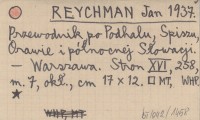 REYCHMAN Jan 1937.
Przewodnik po Podhalu, Spiszu,
Orawie i północnej Słowacji.
— Warszawa. Stron XVI, 258,
m. 7, okł., cm 17 × 12. □ MT, WHP
★
WHP, MT